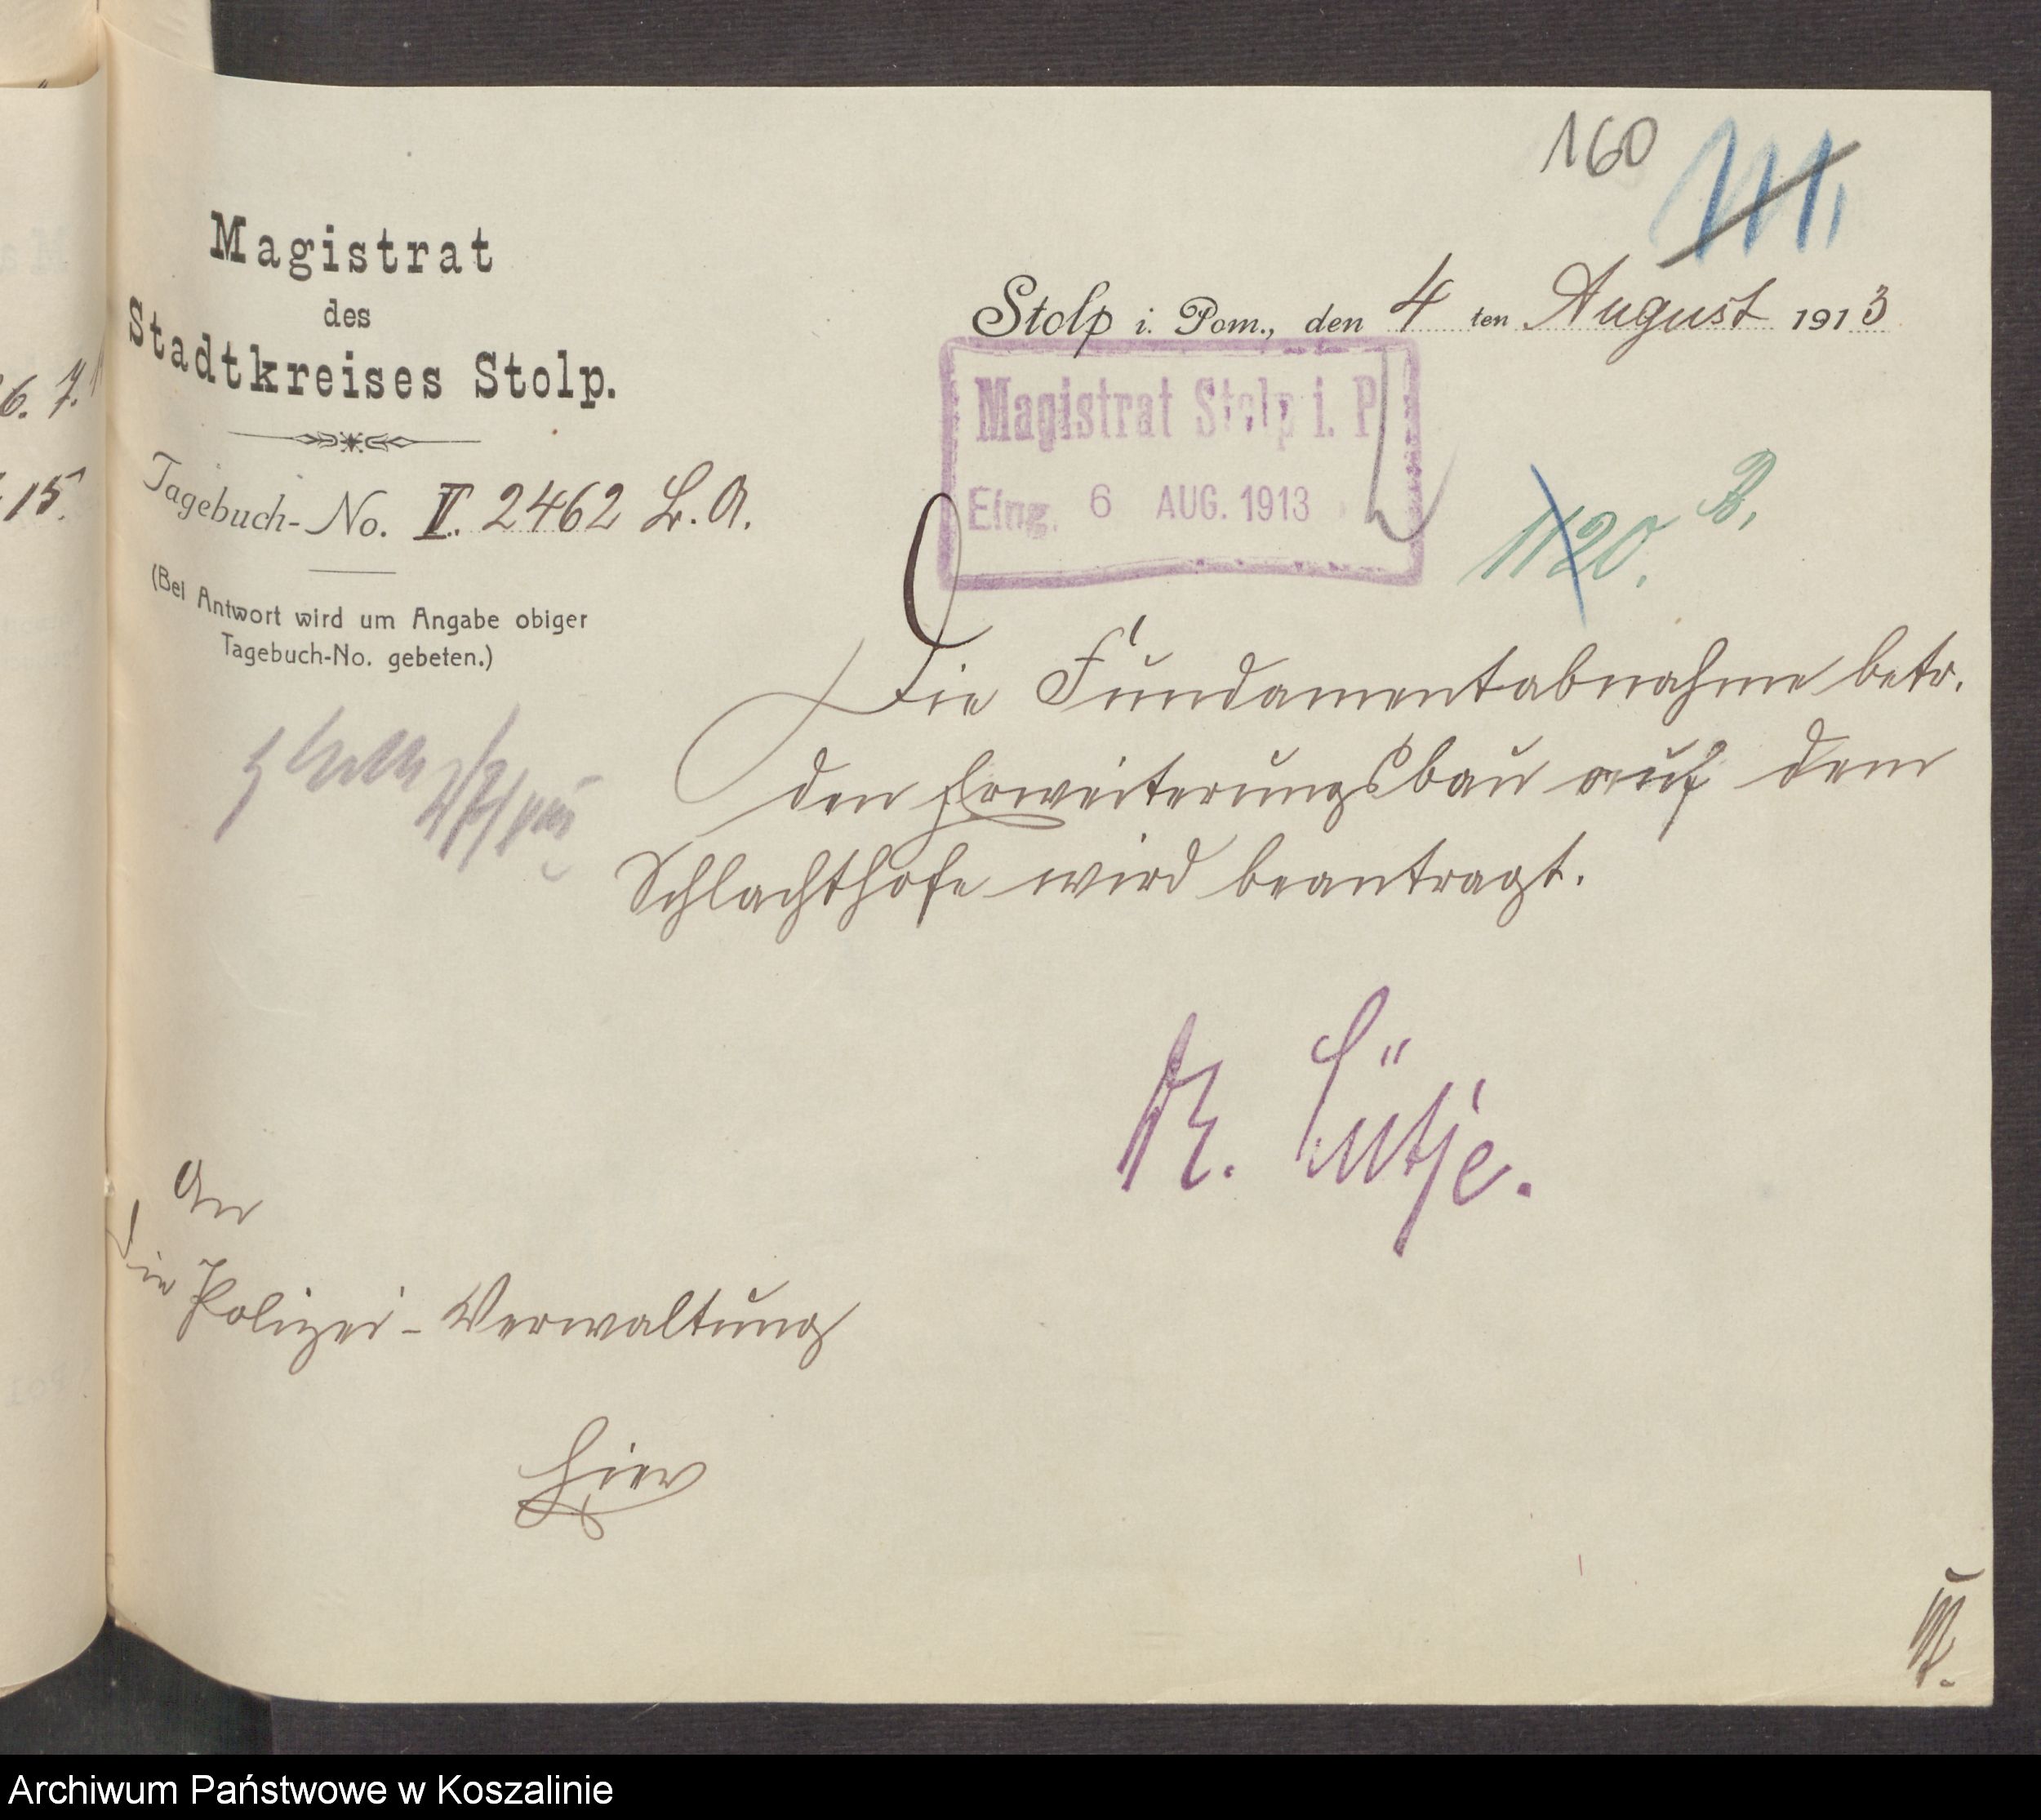 160
111.
Magistrat
des
Stadtkreises Stolp.
Stolp i. Pom., den 4 ten August 1913
Tagebuch-No. II. 2462 L.A.
(Bei Antwort wird um Angabe obiger
Tagebuch-No. gebeten.)
Magistrat Stolp i. P
Eing. 6 AUG. 1913
1120. B.
Die Fundamentabnahme betr.
den Erweiterungsbau auf dem
Schlachthofe wird beantragt.
Lütje.
An
die Polizei-Verwaltung
Hier
6. 7.
15.
Archiwum Państwowe w Koszalinie